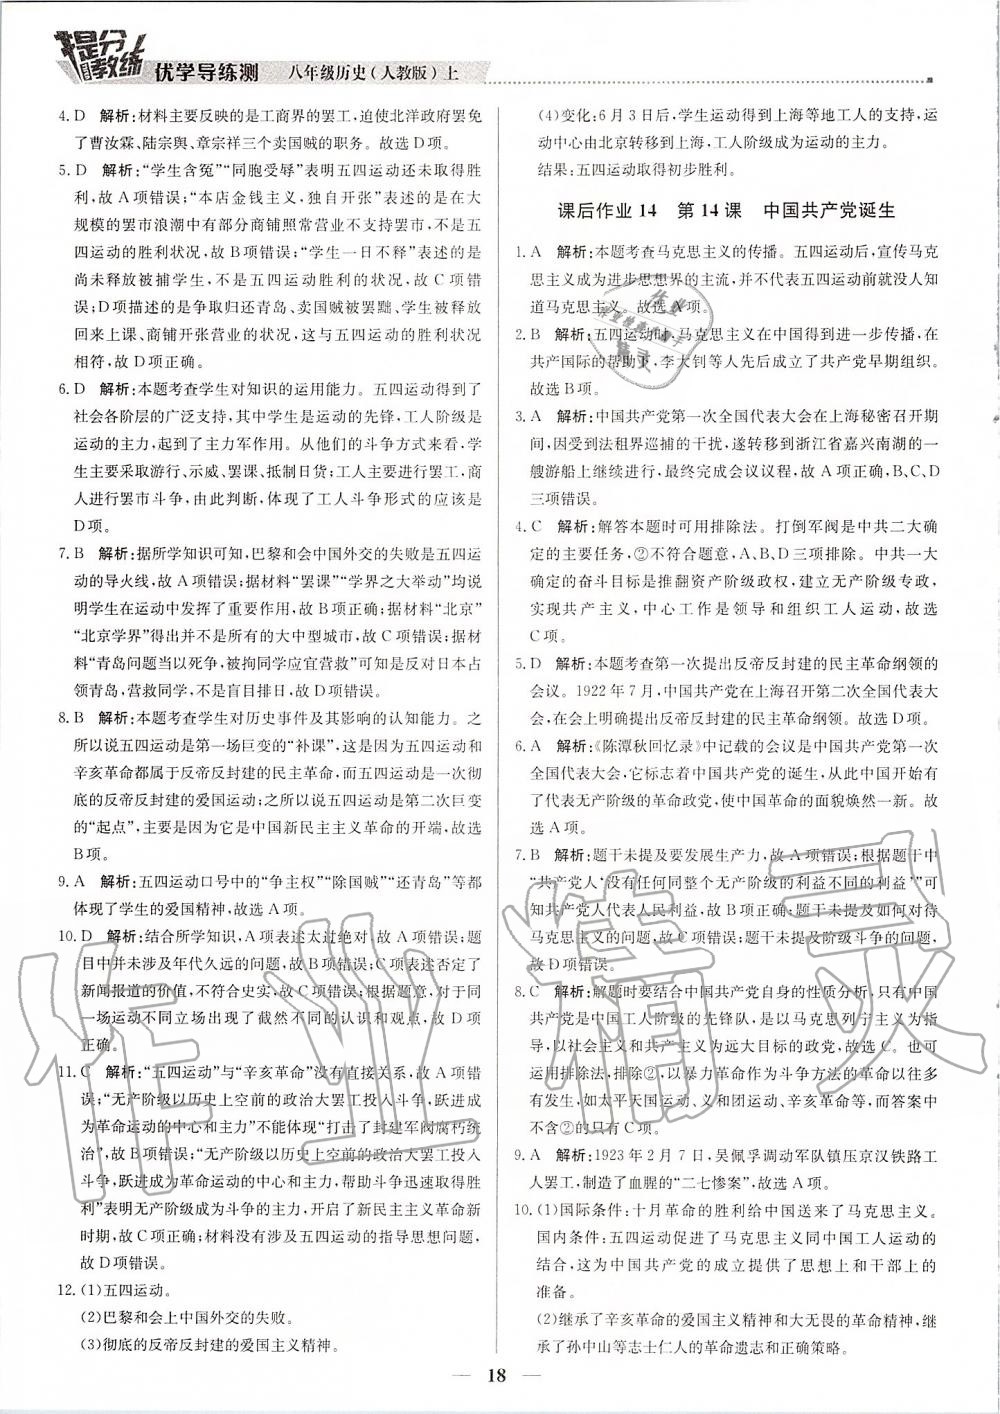 提分教练
优学导练测 八年级历史(人教版)上
4. D 解析:材料主要反映的是工商界的罢工，迫使北洋政府罢免
了曹汝霖、陆宗舆、章宗祥三个卖国贼的职务。故选D项。
5. D 解析:“学生含冤”“同胞受辱”表明五四运动还未取得胜
利，故A项错误;“本店金钱主义，独自开张”表明的是在大
规模的罢市浪潮中有部分商铺照常营业不支持罢市，与五
四运动的胜利状况，故B项错误;“学生一日不释”表明的是
尚未释放被捕学生，不是五四运动胜利的状况，故C项错
误;D项描述的是争取归还青岛、卖国贼被罢黜、学生胜利
回来上课、商铺开张营业的状况，这与五四运动的胜利状况
相符，故D项正确。
6. D 解析:本题考查学生对知识的运用能力。五四运动得到了
社会各阶层的广泛支持，其中学生是运动的先锋，工人阶级是
运动的主力，起到了主力军作用。从他们的斗争方式来看，学
生主要采取游行、示威、罢课、抵制日货;工人主要进行罢工，商
人进行罢市斗争，由此判断，体现了工人斗争形式的应该是
D项。
7. B 解析:据所学知识可知，巴黎和会中国外交的失败是五四运
动的导火线，故A项错误;据材料“罢课”“学界之大举动”均说
明学生在运动中发挥了重要作用，故B项正确;据材料“北京”
“北京学界”得出并不是所有的大中型城市，故C项错误;据材
料“青岛问题当以死争，被拘同学应宜营救”可知是反对日本占
领青岛，营救同学，不是盲目排日，故D项错误。
8. B 解析:本题考查学生对历史事件及其影响的认知能力。之
所以说五四运动是第一场巨变的“补课”，这是因为五四运动和
辛亥革命都属于反帝反封建的民主革命，而五四运动是一次彻
底的反帝反封建的爱国运动;之所以说五四运动是第二次巨变
的“起点”，主要是因为它是中国新民主主义革命的开端，故选
B项。
9. A 解析:五四运动口号中的“争主权”“除国贼”“还青岛”等都
体现了学生的爱国精神，故选A项。
10. D 解析:结合所学知识，A项表述太过绝对，故A项错误;题
目中并未涉及年代久远的问题，故B项错误;C项表述否定了
新闻报道的价值，不符合史实，故C项错误;根据题意，对于同
一场运动不同立场出现了截然不同的认识和观点，故D项
正确。
11. C 解析:“五四运动”与“辛亥革命”没有直接关系，故A项错
误;“无产阶级以历史上空前的政治大罢工投入斗争，跃进成
为革命运动的中心和主力”不能体现“打击了封建军阀腐朽统
治”，故B项错误;“无产阶级以历史上空前的政治大罢工投入
斗争，跃进成为革命运动的中心和主力，帮助斗争迅速取得胜
利”表明无产阶级成为斗争的主力，开启了新民主主义革命新
时期，故C项正确;材料没有涉及五四运动的指导思想问题，
故D项错误。
12. (1)五四运动。
(2)巴黎和会上中国外交的失败。
(3)彻底的反帝反封建的爱国主义精神。
(4)变化:6月3日后，学生运动得到上海等地工人的支持，运
动中心由北京转移到上海，工人阶级成为运动的主力。
结果:五四运动取得初步胜利。
课后作业14 第14课 中国共产党诞生
1. A 解析:本题考查马克思主义的传播。五四运动后，宣传马克
思主义成为进步思想界的主流，并不代表五四运动前就没人知
道马克思主义。故选A项。
2. B 解析:五四运动时，马克思主义在中国得到进一步传播，在
共产国际的帮助下，李大钊等人先后成立了共产党早期组织。
故选B项。
3. A 解析:中国共产党第一次全国代表大会在上海秘密召开期
间，因受到法租界巡捕的干扰，遂转移到浙江省嘉兴南湖的一
艘游船上继续进行，最终完成会议议程，故A项正确，B、C、D
三项错误。
4. C 解析:解答本题时可用排除法。打倒军阀是中共二大确
定的主要任务，②不符合题意，A、B、D三项排除。中共一大
确定的奋斗目标是推翻资产阶级政权，建立无产阶级专政，
实现共产主义，中心工作是领导和组织工人运动，故选
C项。
5. D 解析:本题考查第一次提出反帝反封建的民主革命纲领的
会议。1922年7月，中国共产党在上海召开第二次全国代表大
会，在会上明确提出反帝反封建的民主革命纲领。故选D项。
6. A 解析:《陈潭秋回忆录》中记载的会议是中国共产党第一次
全国代表大会，它标志着中国共产党的诞生，从此中国开始有
了代表无产阶级的革命政党，使中国革命的面貌焕然一新。故
选A项。
7. B 解析:题干未提及要发展生产力，故A项错误;根据题干中
“共产党人‘没有任何同整个无产阶级的利益不同的利益’”可
知共产党人代表人民利益，故B项正确;题干未提及如何对待
马克思主义的问题，故C项错误;题干未提及阶级斗争的问题，
故D项错误。
8. C 解析:解题时要结合中国共产党自身的性质分析，只有中国
共产党是中国工人阶级的先锋队，是以马克思列宁主义为指
导，以社会主义和共产主义为远大目标的政党，故选C。也可
运用排除法，即以暴力革命作为斗争方法的革命运动有很
多，如太平天国运动、义和团运动、辛亥革命等，而答案中
不含②的只有C项。
9. A 解析:1923年2月7日，吴佩孚调动军队镇压京汉铁路工
人罢工，制造了血腥的“二七惨案”，故选A项。
10. (1)国际条件:十月革命的胜利给中国送来了马克思主义。
国内条件:五四运动促进了马克思主义同中国工人运动的
结合，这为中国共产党的成立提供了思想上和干部上的
准备。
(2)继承了辛亥革命的爱国主义精神和大无畏的革命精神，
继承了孙中山等志士仁人的革命遗志和正确策略。
18
作业精灵